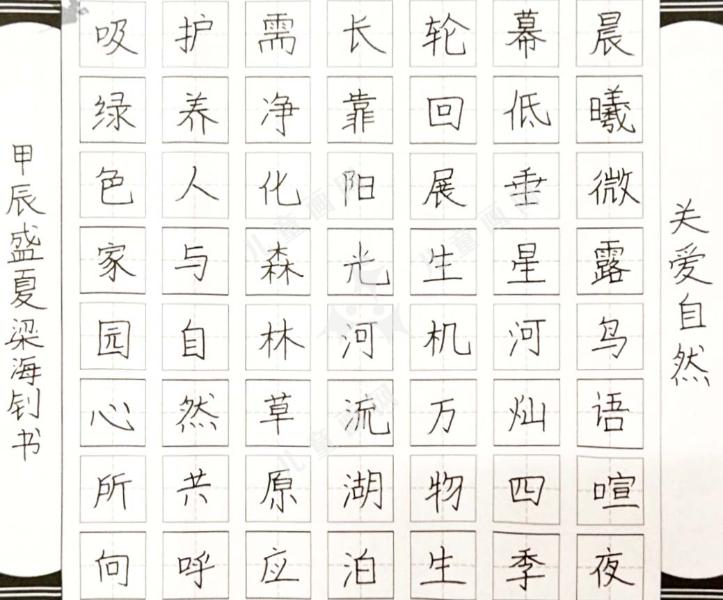 关爱自然
晨曦微露鸟语喧夜
幕低垂星河灿四季
轮回展生机万物生
长靠阳光河流湖泊
需净化森林草原应
护养人与自然共呼
吸绿色家园心所向
甲辰盛夏梁海钊书
儿童画网
儿童画网
儿童画网